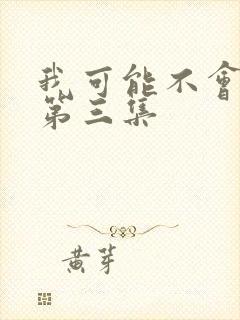 我可能不會
第三集
黄芽